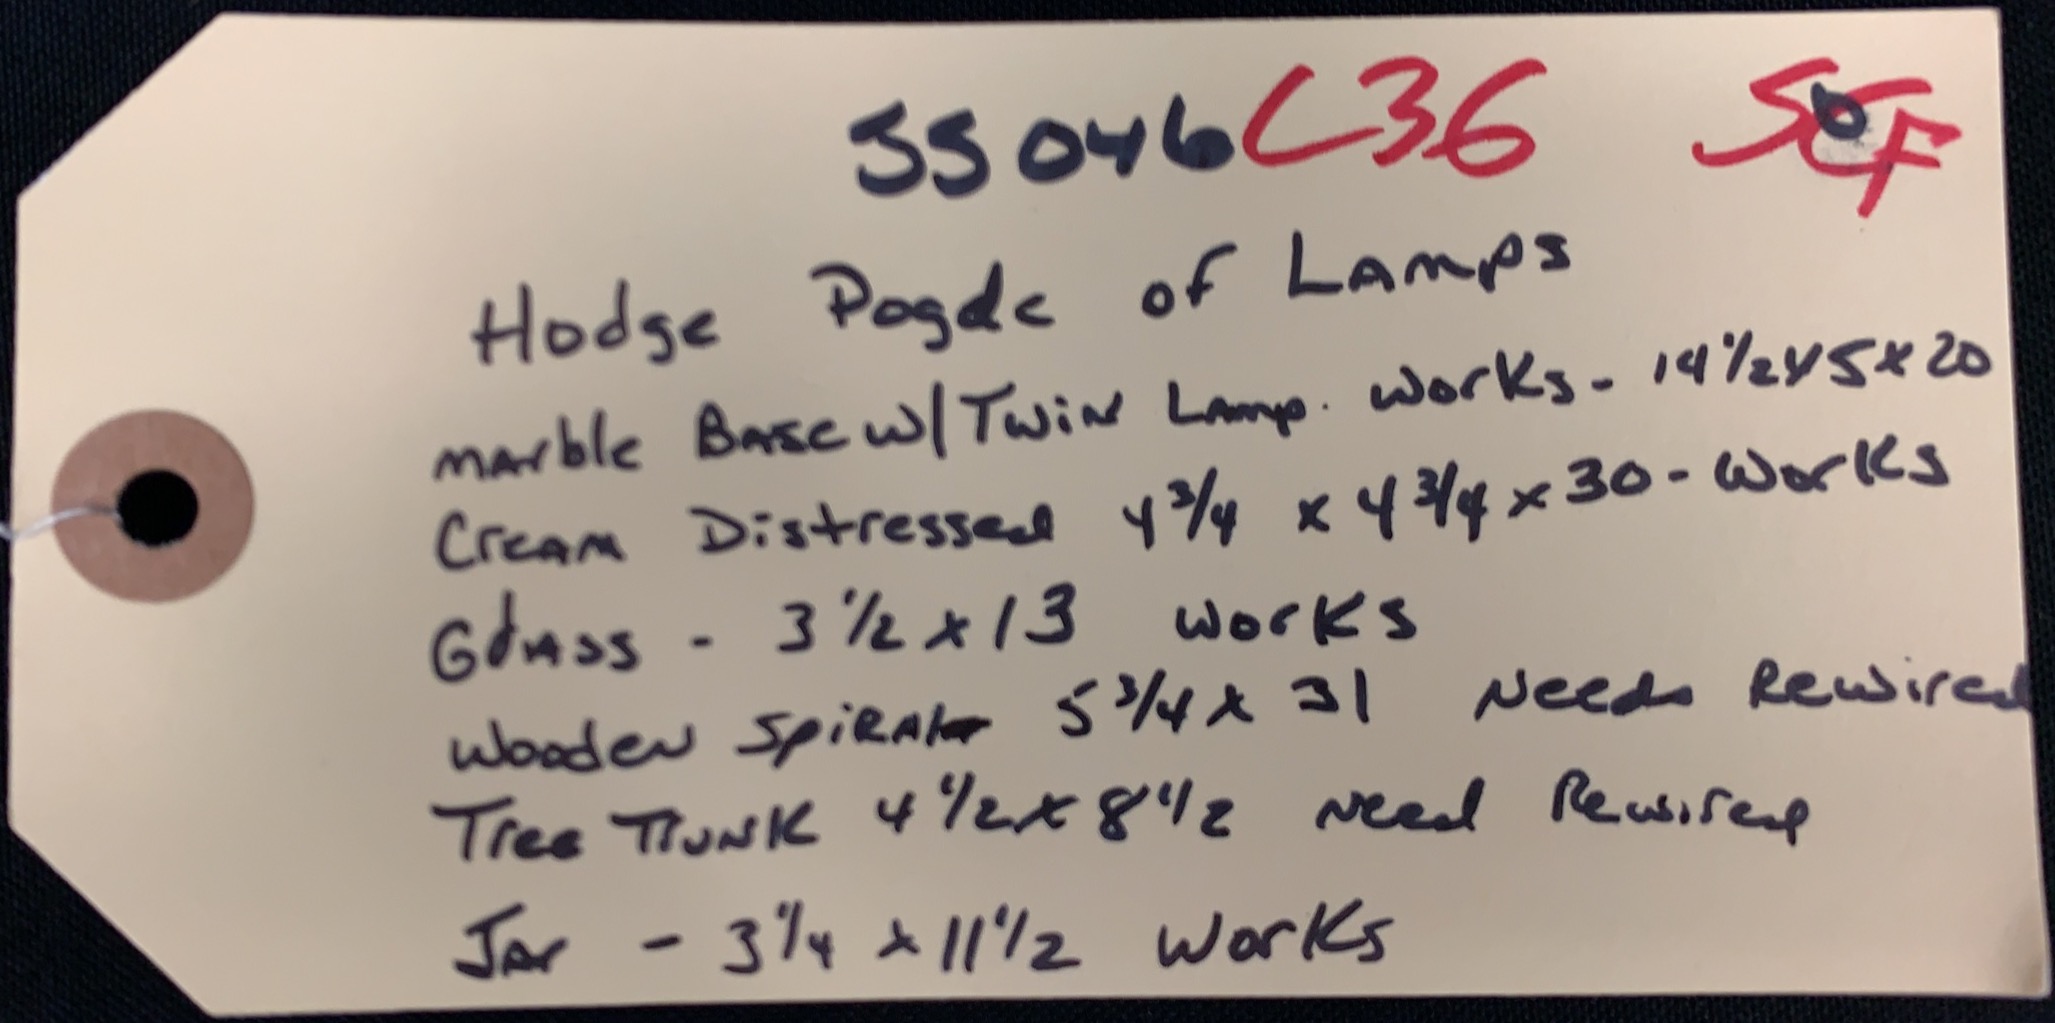 SS046 C36
Hodge Pogde of Lamps
Marble Base w/ Twin Lamp. Works - 14 1/2 x 5 x 20
Cream Distressed 4 3/4 x 4 3/4 x 30 - Works
Glass - 3 1/2 x 13 Works
Wooden Spiral 5 3/4 x 31 Needs Rewired
Tree Trunk 4 1/2 x 8 1/2 Need Rewired
Jar - 3 1/4 x 11 1/2 Works